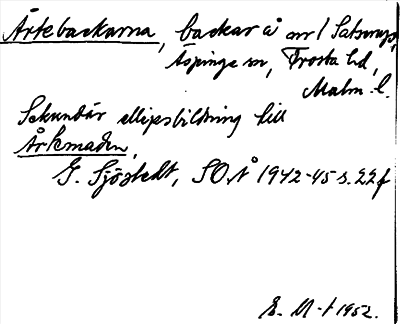 Ärtebackarna, backar å nr 1 Satserup,
Äspinge sn, Frosta hd,
Malm. l.
Sekundär ellipsbildning till
Ärkmaden,
G. Sjöstedt, SOÅ 1942-45 s. 22f
E. M-t 1952.